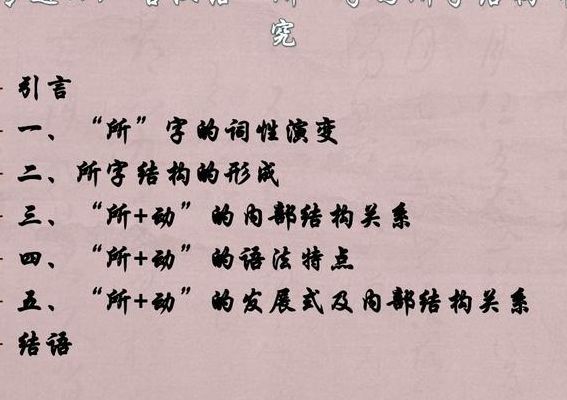 究
引言
一、“所”字的词性演变
二、所字结构的形成
三、“所+动”的内部结构关系
四、“所+动”的语法特点
五、“所+动”的发展式及内部结构关系
结语